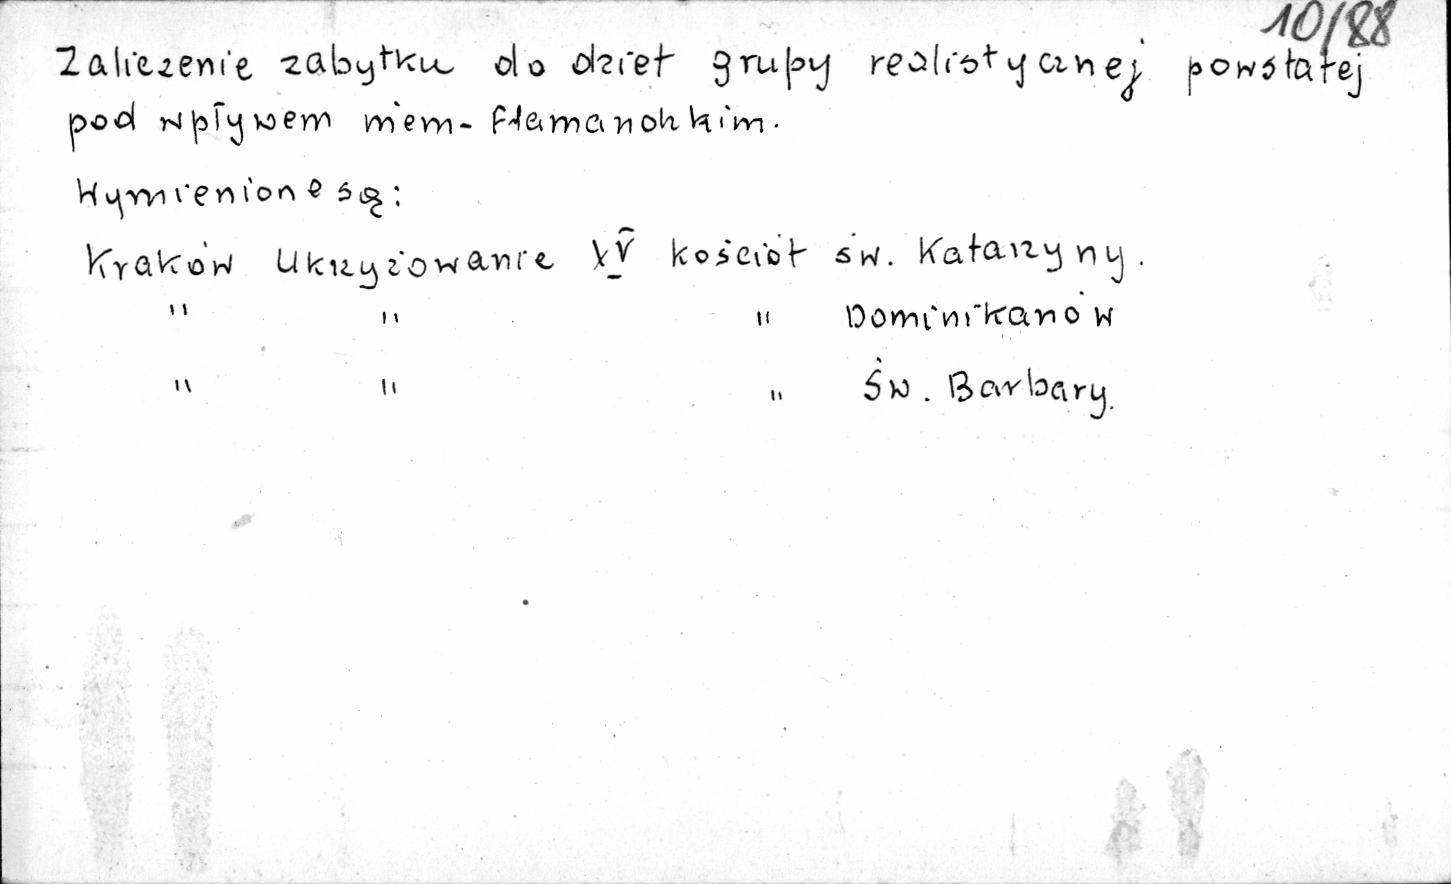 10/88
Zaliczenie zabytku do dzieł grupy realistycznej powstałej
pod wpływem niem-flamandzkim.
Wymienione są:
Kraków Ukrzyżowanie XV kościół św. Katarzyny.
" " " Dominikanów
" " " Św. Barbary.